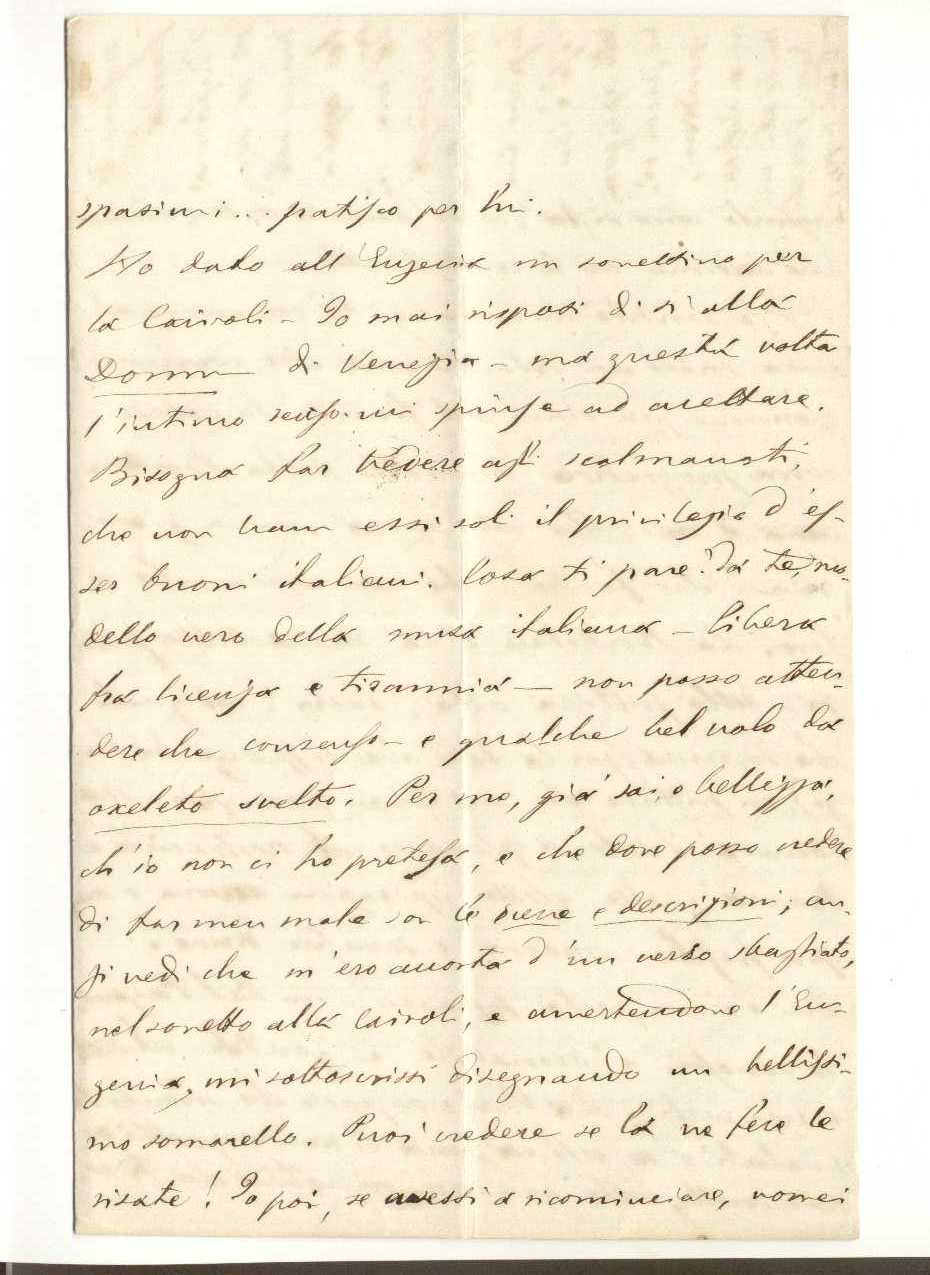 spasimi... patisco per lui.
Ho dato all'Eugenia un sonettino per
la Cairoli - Io mai risposi di sì alla
Donna di Venezia - ma questa volta
l'intimo senso mi spinse ad accettare.
Bisogna far vedere agli scalmanati,
che non hann essi soli il privilegio d'es-
ser buoni italiani. Cosa ti pare? Da te,
dello vero della musa italiana - libera
fra licenza e tirannia - non posso atten-
dere che consenso - e qualche bel volo da
oxeleto svelto. Per me, già sai, o bellezza,
ch'io non ci ho pretesa, e che dove posso vedere
di far men male son le scene e descrizioni; an-
zi vedi che m'ero accorta d'un verso sbagliato,
nel sonetto alla Cairoli, e avvertendone l'Eu-
genia, mi sottoscrissi disegnando un bellissi-
mo somarello. Puoi credere se la ne fece le
risate! Io poi, se avessi a ricominciare, vorrei